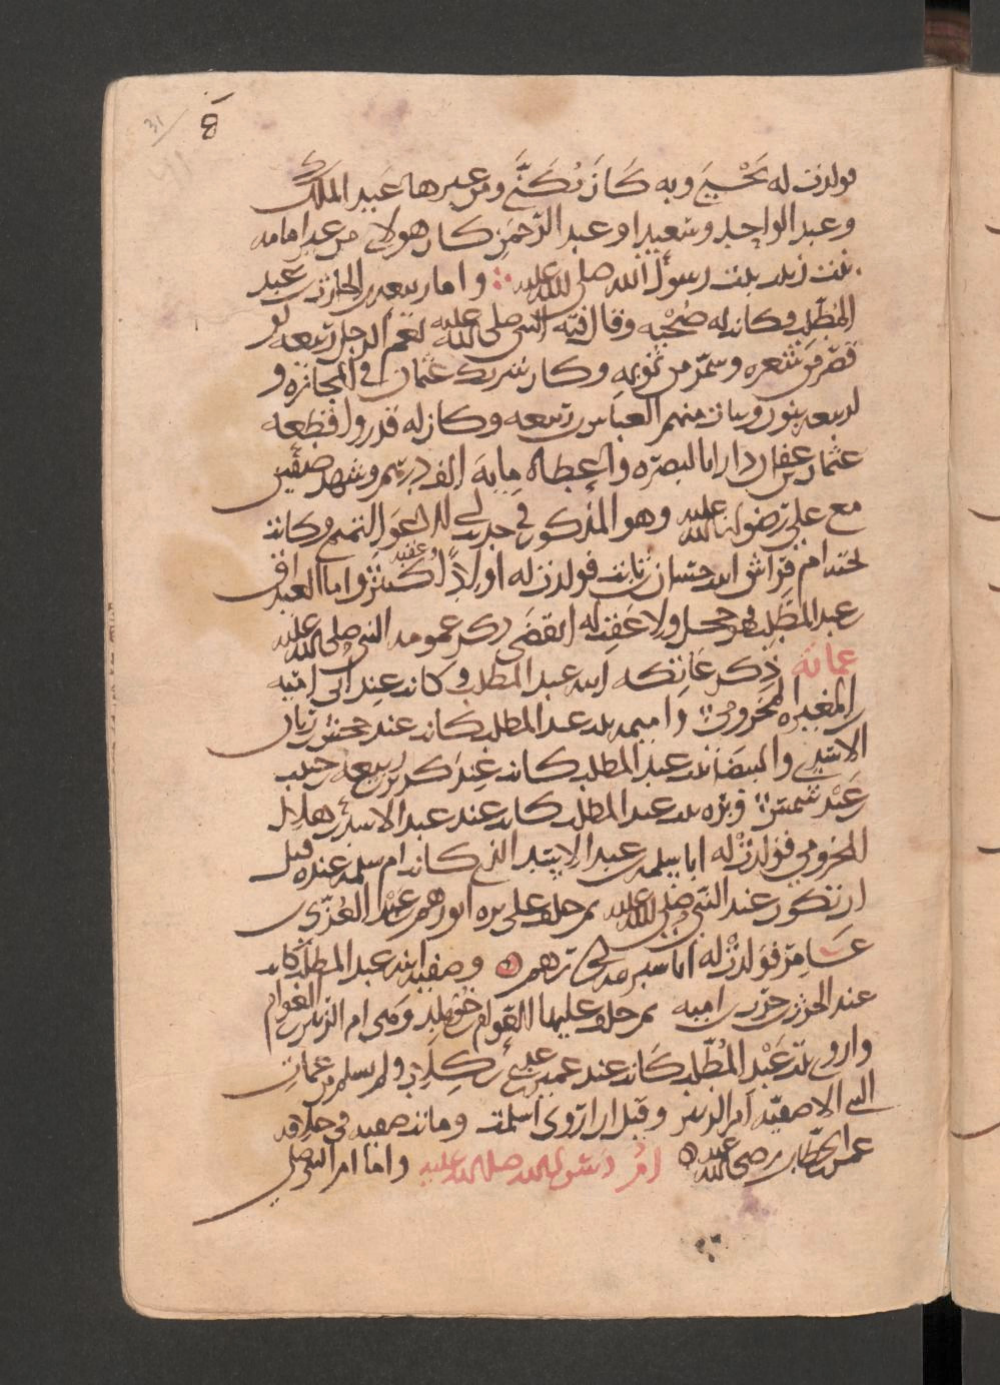 8
31
فولدت له يحيى وبه كان يكنى ومن غيرها عبد الملك
وعبد الواحد وسعيدا وعبد الرحمن كل هولاي من غير امامه
بنت زينب بنت رسول الله صلى الله عليه واما ربيعه بن الحارث بن عبد
المطلب فكانت له صحبه وقال فيه النبي صلى الله عليه نعم الرجل ربيعه لو
قصر من شعره وشمر من ثوبه وكان شريك عثمان في التجاره و
لربيعه بنون وبنات منهم العباس بن ربيعه وكان له قدر واقطعه
عثمان بن عفان دارا بالبصره واعطاه مايه الف درهم وشهد صفين
مع علي رضوان الله عليه وهو المذكور في حديث الاغر التميمي وكانت
تحته ام فراش ابنت حسان بن ثابت فولدت له اولادا وعقبه كثير واما الغيداق بن
عبد المطلب فهو حجل ولا عقب له انقضى ذكر عمومه النبي صلى الله عليه
عماته ذكر عاتكه ابنه عبد المطلب وكانت عند ابي اميه
بن المغيره المخزومي واميمه بنت عبد المطلب كانت عند جحش بن رياب
الاسدي والبيضا بنت عبد المطلب كانت عند كريز بن ربيعه بن حبيب بن
عبد شمس وبره بنت عبد المطلب كانت عند عبد الاسد بن هلال
المخزومي فولدت له ابا سلمه بن عبد الاسد الذي كانت ام سلمه عنده قبل
ان تكون عند النبي صلى الله عليه ثم خلف على بره ابو رهم بن عبد العزى
عامر فولدت له ابا سبره بن ابي رهم وصفيه ابنه عبد المطلب كانت
عند الحرث بن حرب بن اميه ثم خلف عليها العوام بن خويلد وهي ام الزبير بن العوام
واروى بنت عبد المطلب كانت عند عمير بن عبد بن كلاب ولم يسلم من عمات
النبي الا صفيه ام الزبير وقيل ان اروى اسلمت وماتت صفيه في خلافه
عمر بن الخطاب رضي الله عنه ام رسول الله صلى الله عليه واما ام النبي صلى